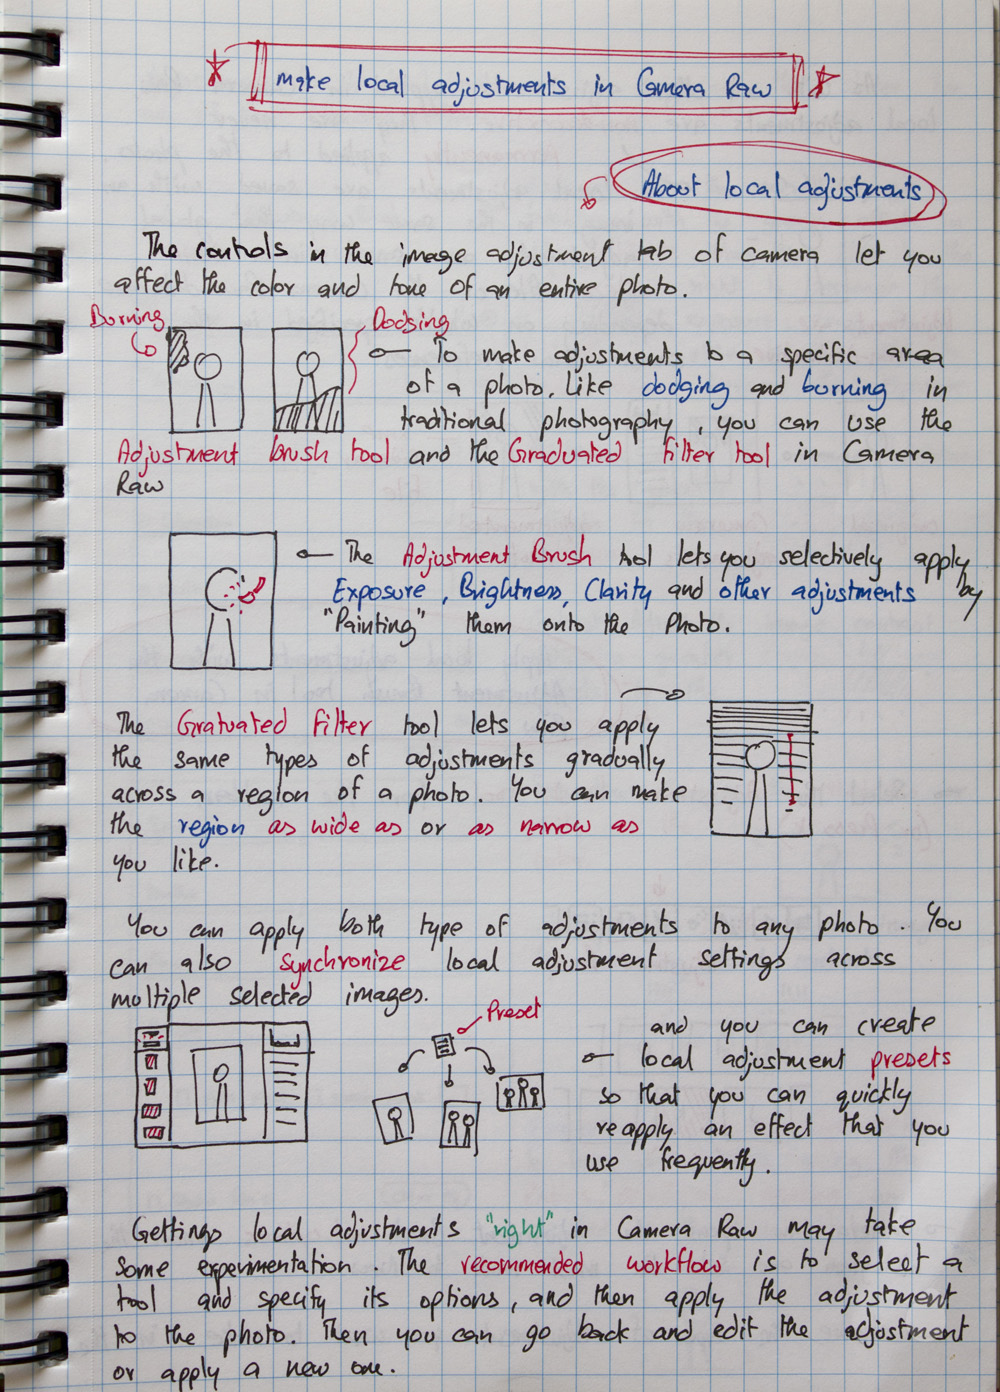 make local adjustments in Camera Raw
About local adjustments
The controls in the image adjustment tab of camera let you
affect the color and tone of an entire photo.
Burning
Dodging
To make adjustments to a specific area
of a photo, like dodging and burning in
traditional photography, you can use the
Adjustment brush tool and the Graduated filter tool in Camera
Raw
The Adjustment Brush tool lets you selectively apply
Exposure, Brightness, Clarity and other adjustments by
"Painting" them onto the Photo.
The Gratuated filter tool lets you apply
the same types of adjustments gradually
across a region of a photo. You can make
the region as wide as or as narrow as
you like.
You can apply both type of adjustments to any photo. You
can also synchronize local adjustment settings across
multiple selected images.
Preset
and you can create
local adjustment presets
so that you can quickly
reapply an effect that you
use frequently.
Gettings local adjustments "right" in Camera Raw may take
some experimentation. The recommended workflow is to select a
tool and specify its options, and then apply the adjustment
to the photo. Then you can go back and edit the adjustment
or apply a new one.